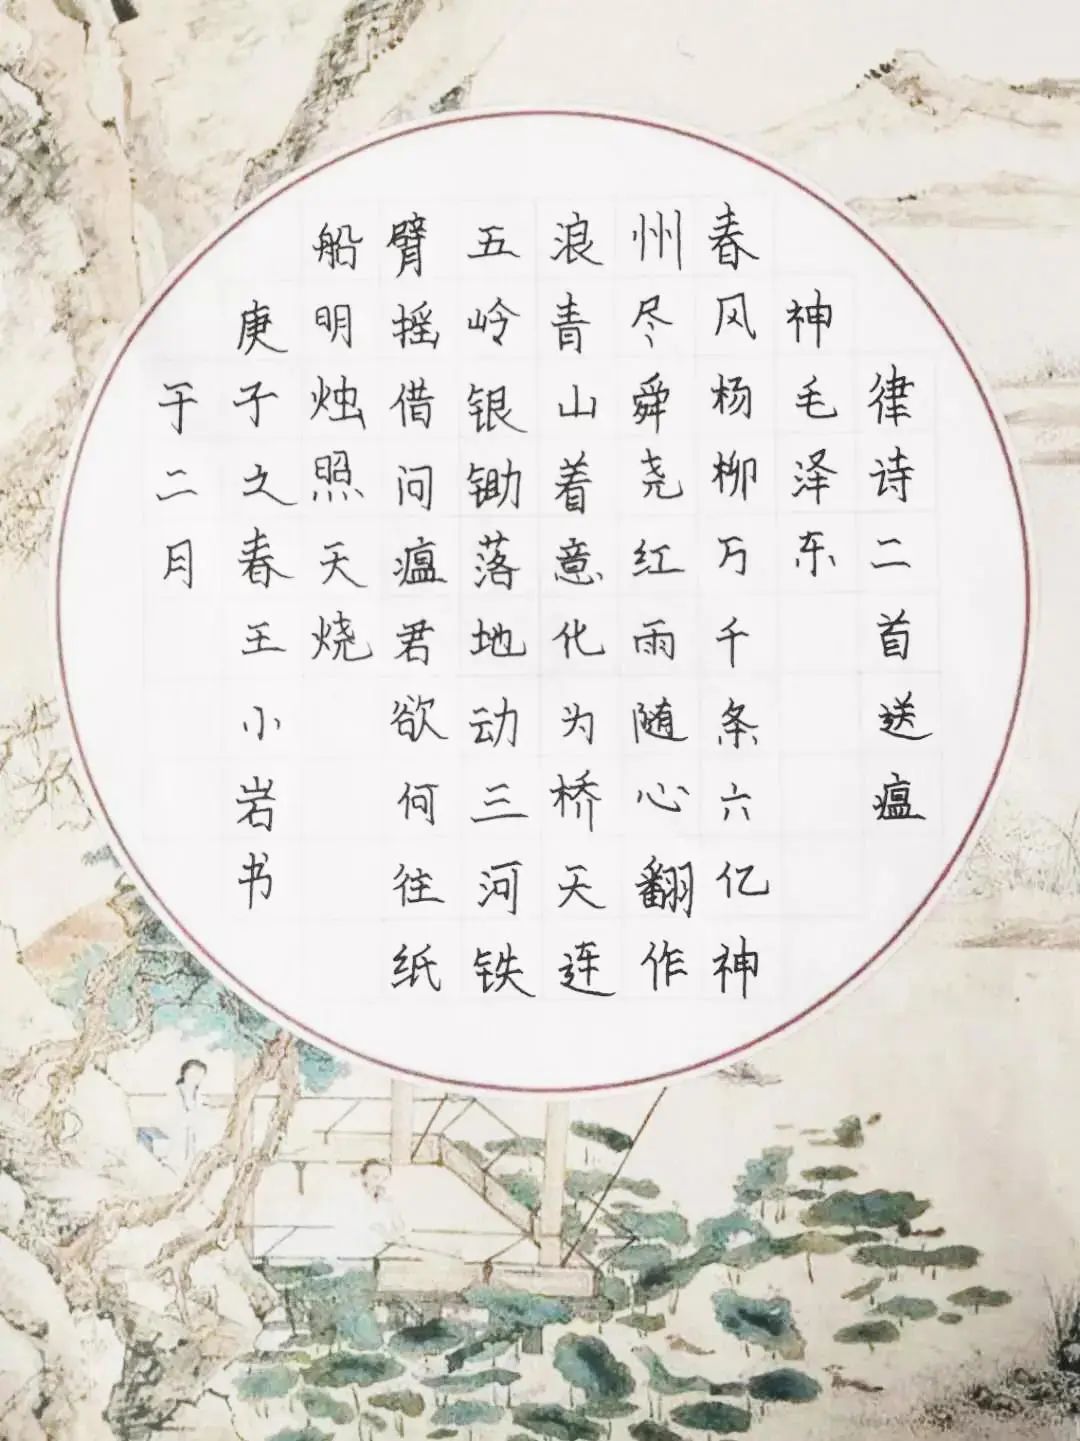 律诗二首送瘟
神毛泽东
春风杨柳万千条六亿神
州尽舜尧红雨随心翻作
浪青山着意化为桥天连
五岭银锄落地动三河铁
臂摇借问瘟君欲何往纸
船明烛照天烧
庚子之春王小岩书
于二月